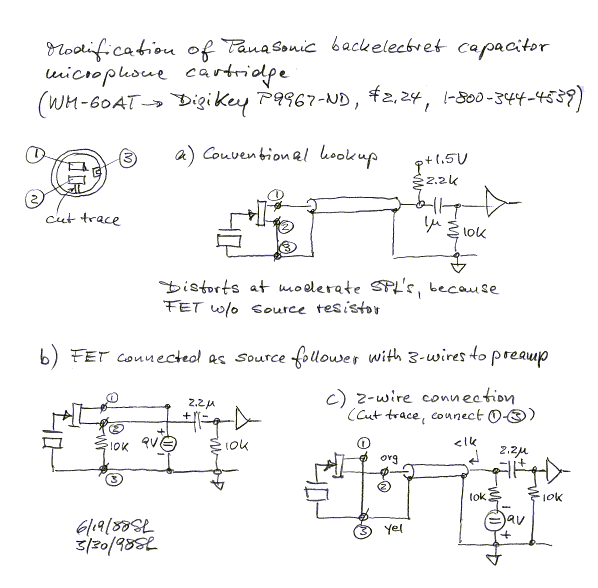 Modification of Panasonic backelectret capacitor
microphone cartridge
(WM-60AT → DigiKey P9967-ND, $2.24, 1-800-344-4539)
1
2
3
cut trace
a) Conventional hookup
+1.5V
2.2k
1
2
3
1μ
10K
Distorts at moderate SPL's, because
FET w/o source resistor
b) FET connected as source follower with 3-wires to preamp
1
2
3
10K
9V
+
-
2.2μ
+ -
10K
c) 2-wire connection
(Cut trace, connect 1-3)
1
org
2
3
yel
<1k
2.2μ
- +
10K
-
9V
+
10K
6/19/88SL
3/30/98SL